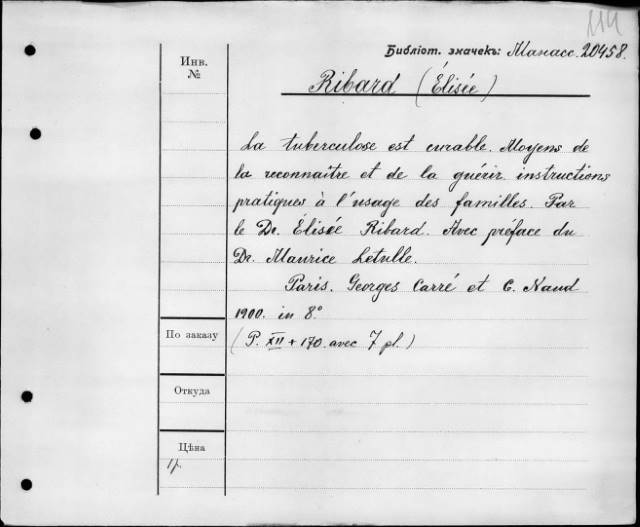 114
Библіот. значекъ: Манасс. 20458.
Инв.
№
Ribard (Élisée)
La tuberculose est curable. Moyens de
la reconnaître et de la guérir. instructions
pratiques à l'usage des familles. Par
le Dr. Élisée Ribard. Avec préface du
Dr. Maurice Letulle.
Paris. Georges Carré et C. Naud
1900. in 8°
По заказу
(P. XII + 170. avec 7 pl.)
Откуда
Цѣна